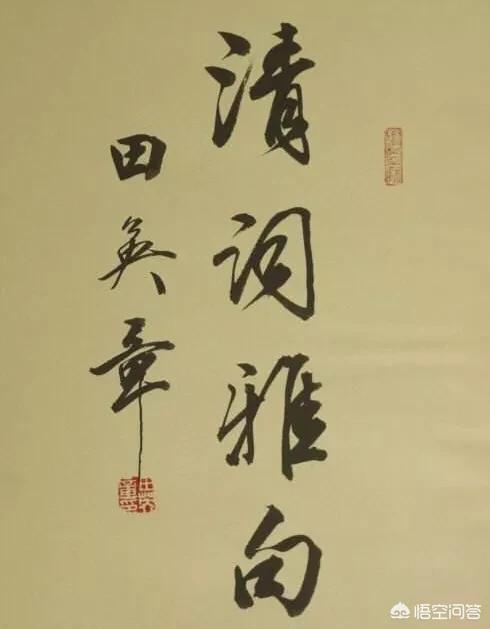 清词雅句
田英章
悟空问答